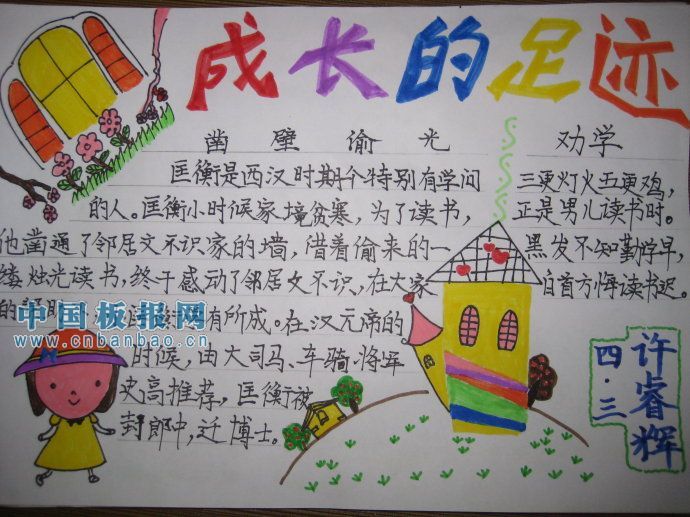 成长的足迹
凿壁偷光
匡衡是西汉时期个特别有学问
的人。匡衡小时候家境贫寒，为了读书，
他凿通了邻居文不识家的墙，借着偷来的一
缕烛光读书，终于感动了邻居文不识，在大家
的帮助
有所成。在汉元帝的
时候，由大司马、车骑将军
史高推荐，匡衡被
封郎中，迁博士。
劝学
三更灯火五更鸡，
正是男儿读书时。
黑发不知勤学早，
白首方悔读书迟。
许睿辉
四.三
中国板报网
www.cnbanbao.cn